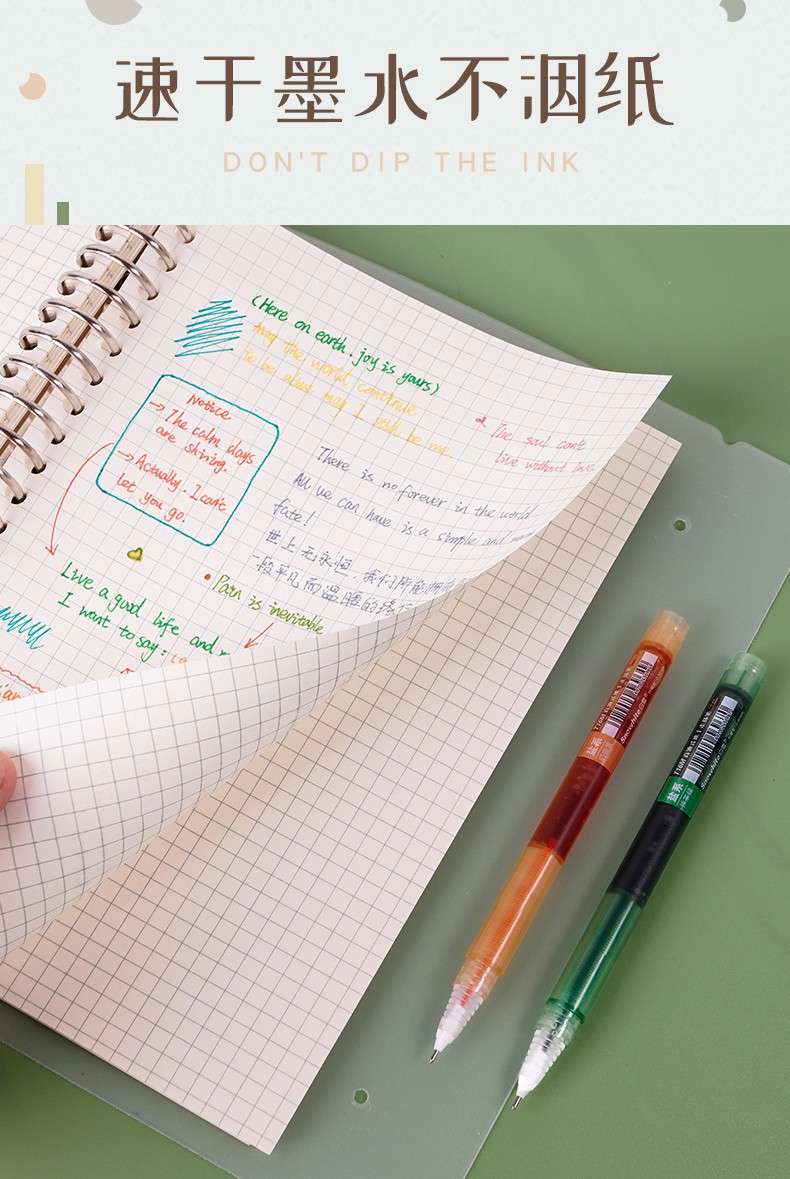 速干墨水不洇纸
DON'T DIP THE INK
(Here on earth . joy is yours)
may the world continue
to be alive may I still be me.
Notice
→ The calm days
are shining.
→ Actually . I can't
let you go.
The soul can't
live without love.
There is no forever in the world
All we can have is a simple and
fate!
世上无永恒，我们所能拥有
一段平凡而温暖的缘
Live a good life and
I want to say:
• Pain is inevitable
Snowhite
盐系
Snowhite
盐系